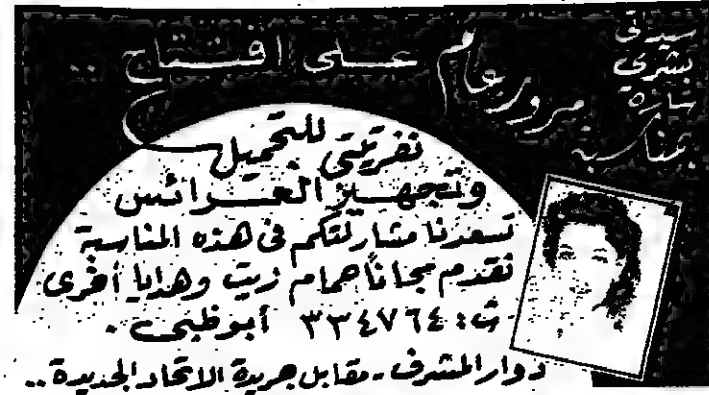 سيدتي
بشرى
سارة
بمناسبة
مرور عام على افتتاح ..
نفرتيتي للتجميل
وتجهيز العرائس
تسعدنا مشاركتكم فى هذه المناسبة
نقدم مجاناً حمام زيت وهدايا أخرى
ت: ٣٣٤٧٦٤ أبوظبى .
دوار المشرف - مقابل جريدة الاتحاد الجديدة ..